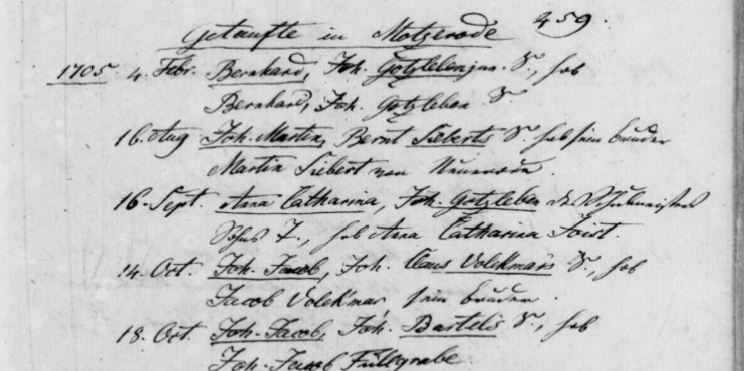 Getaufte in Motzerode 459.
1705. 4. Febr. Bernhard, Joh. Gotzleben jun. S., hob
Bernhard, Joh. Gotzleben S.
16. Aug Joh. Martin, Bernt Sieberts S. hob sein bruder
Martin Siebert von
16. Sept. Anna Catharina, Joh. Gotzleben des Schulmeisters
Sohns T., hob Anna Catharina Joist
14. Oct. Joh. Jacob, Joh. Claus Volckmars S., hob
Jacob Volckmar sein bruder.
18. Oct. Joh. Jacob, Joh. Bartels S., hob
Joh. Jacob Füllgrabe.